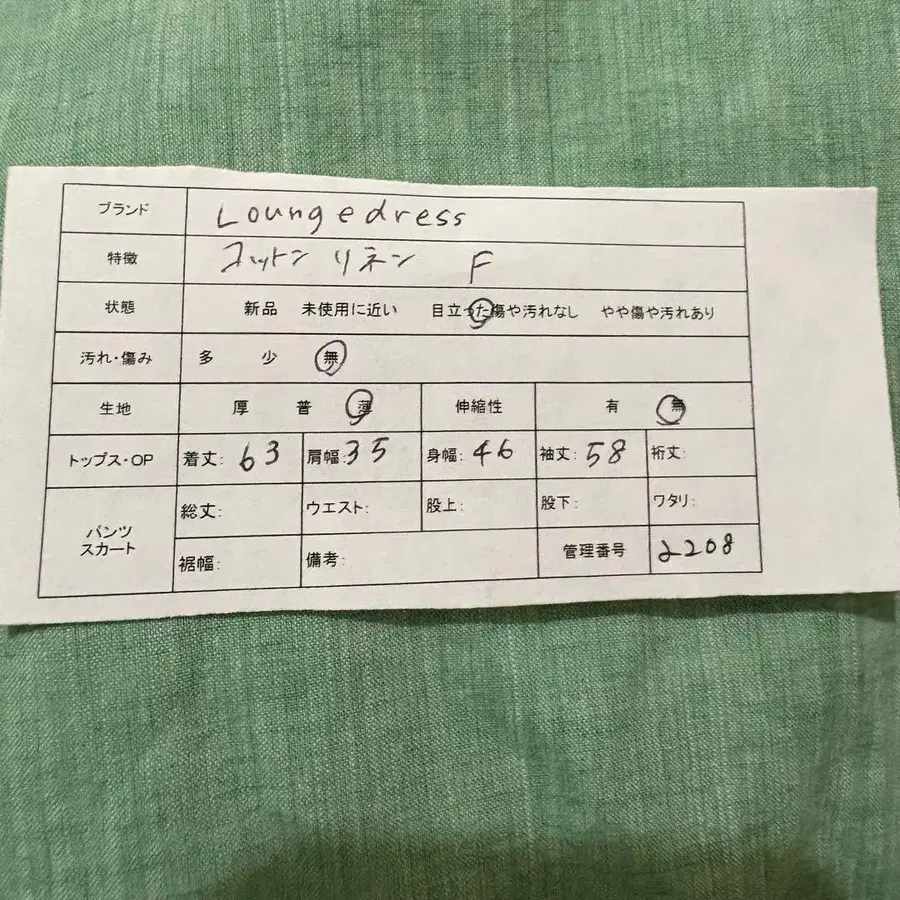 ブランド Loungedress
特徴 コットン リネン F
状態 新品 未使用に近い 目立った傷や汚れなし やや傷や汚れあり
汚れ・傷み 多 少 無
生地 厚 普 薄 伸縮性 有 無
トップス・OP 着丈: 63 肩幅: 35 身幅: 46 袖丈: 58 裄丈:
パンツ スカート 総丈: ウエスト: 股上: 股下: ワタリ:
裾幅: 備考: 管理番号 2208